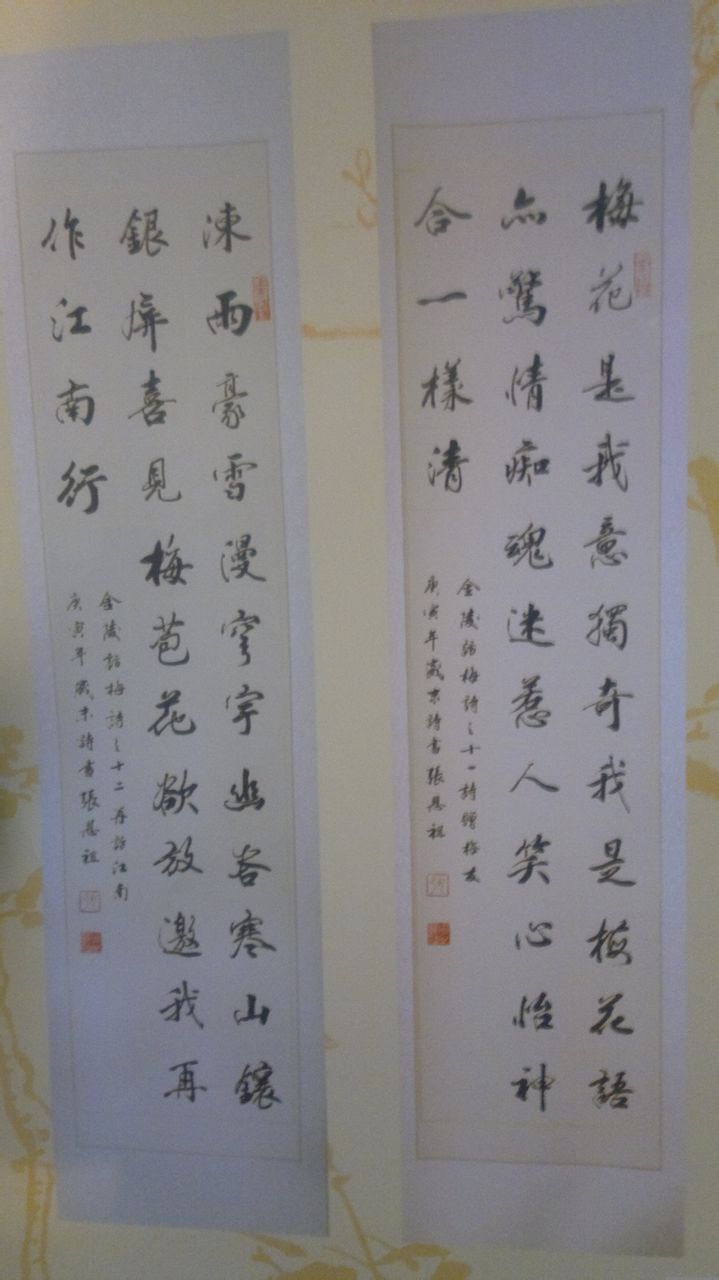 梅花是我意獨奇我是梅花語
亦驚情痴魂迷惹人笑心怡神
合一樣清
金陵訪梅詩之十一詩贈梅友
庚寅年歲末詩書張恩祖
凍雨豪雪漫穹宇幽谷寒山鑲
銀屏喜見梅苞花欲放邀我再
作江南行
金陵訪梅詩之十二再訪江南
庚寅年歲末詩書張恩祖